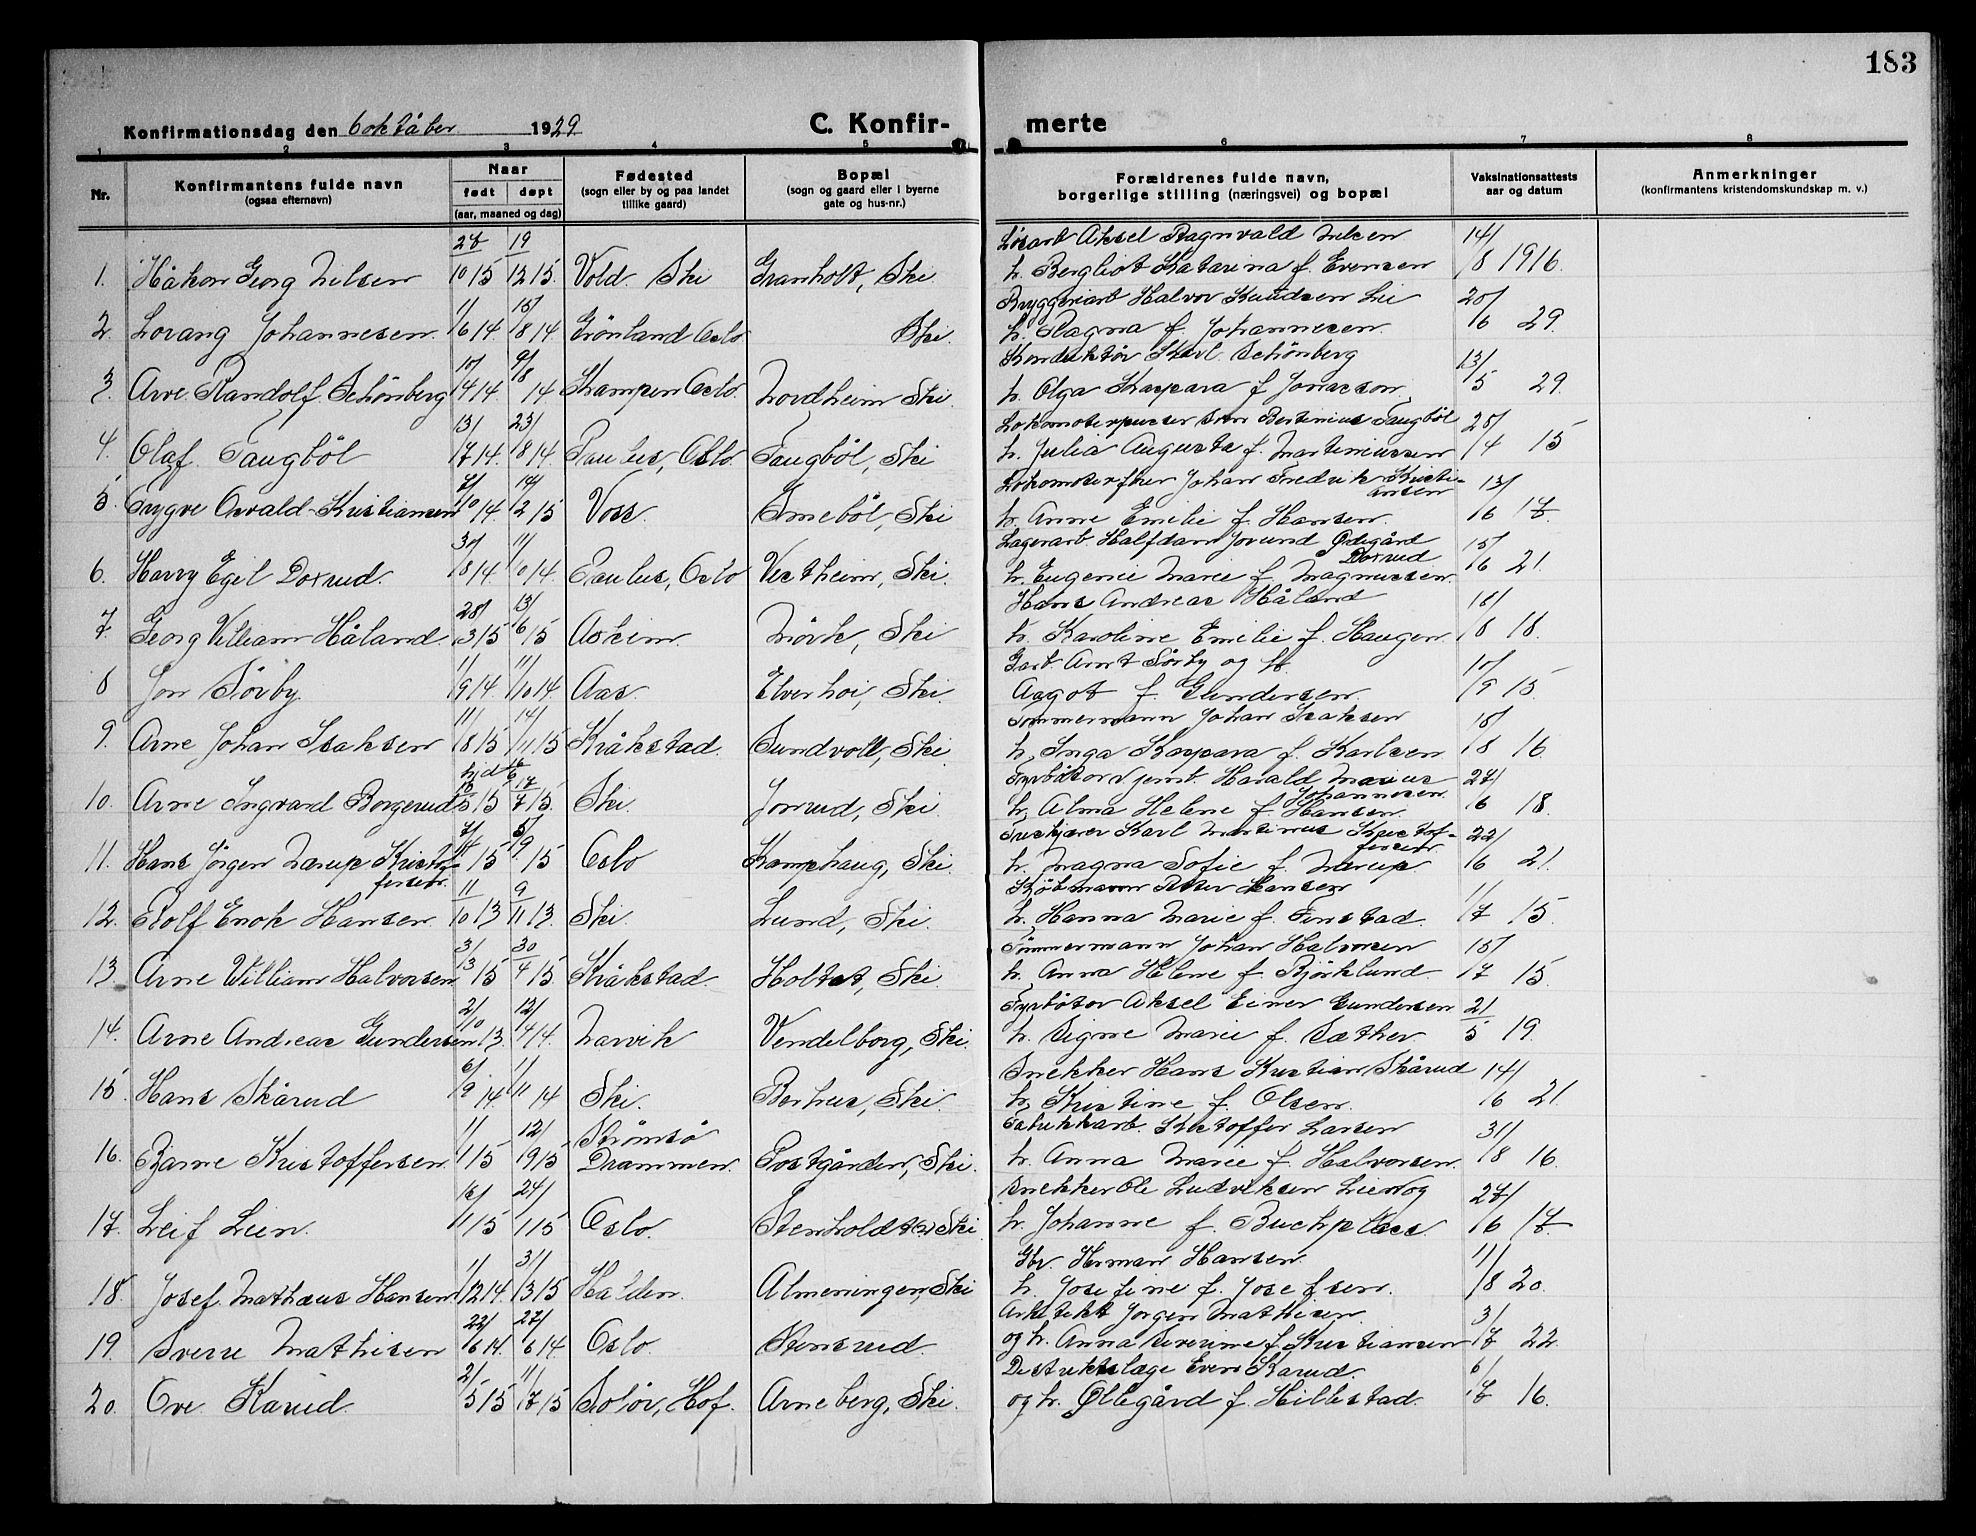 183
Konfirmationsdag den 6 oktåber 1929
C. Konfir-
merte
1 2 3 4 5 6 7 8
Nr.
Konfirmantens fulde navn
(ogsaa efternavn)
Naar
født døpt
(aar, maaned og dag)
Fødested
(sogn eller by og paa landet
tillike gaard)
Bopæl
(sogn og gaard eller i byerne
gate og hus-nr.)
Forældrenes fulde navn,
borgerlige stilling (næringsvei) og bopæl
Vaksinationsattests
aar og datum
Anmerkninger
(konfirmantens kristendomskundskap m. v.)
28 19 Løsarb Aksel Ragnvald Nilsen 14/
1. Håkon Georg Nilsen 10 15 12 15 Vold Ski Granholt, Ski. h. Bergliot Katarina f. Evensen 8 1916.
1/ 15/ Bryggeriarb Halvor Knudsen Lie 20/
2. Lorang Johannesen 6 14. 8 14 Grönland Oslo Ski. h. Ragna f. Johannesen. 6 29.
10/ 9/8 Konduktör Karl Schönberg 13/
3. Arve Randolf Schönberg 4 14 14 Kampen Oslo. Nordheim Ski. h. Olga Kaspara f Jonasson. 5 29.
13/ 23/ Lokomotivpusser Bertinius Taugböl 28/
4. Olaf Taugböl 7 14. 8 14. Paulus, Oslo. Taugböl, Ski h. Julia Augusta f. Martiniussen 4 15
14/ Johan Fredrik Kristi- 13/
ansen
5. Trygve Osvald Kristiansen 10 14. 12 15 Voss. Smeböl, Ski h. Anne Emilie f. Hansen. 6 17.
30/ 11/ Lagerarb Halfdan Jorund Ødegård 15/
Doxrud
6. Harry Egil Doxrud. 8 14 10 14. Paulus, Oslo Vestheim, Ski. h. Eugenie Marie f. Magnussen. 6 21.
28/ 13/ Hans Andreas Håland 18/
7. Georg William Håland. 3 15 6 15 Askim. Mörk, Ski h. Karoline Emilie f. Haugen 8 18.
1/ 11/ Garb. Arnt Sörby og h. 10/
8 Jon Sörby 9 14. 10 14 Aas. Elverhoi, Ski. Aagot f. Gundersen. 9 15.
11/ 14/ Tömmermann Johan Isaksen 18/
9. Arne Johan Isaksen 8 15 11 15 Kråkstad. Sundvoll, Ski. h. Inga Kaspara f. Karlsen 8 16.
hjd 16/6 Harald Marius 27/
Johannesen.
10. Arne Ingvard Borgerud 5 15 17/7 15. Ski. Jonrud, Ski. h. Alma Helene f Hansen. 6 18.
7/ 5/ Karl Martinus Kristof- 22/
fersen.
11. Hans Jörgen Nærup Kristof- 15 9 15 Oslo Kamphaug, Ski. h. Magna Sofie f. Nærup. 6 21.
fersen.
11 9 Köbmann Peter Hansen 1/
12. Rolf Enok Hansen 10 13 11 13. Ski. Lund, Ski. h. Hanna Marie f. Finstad. 7 15.
3/ 30 Tömmermann Johan Halvorsen 18/
13. Arne William Halvorsen 3 15 4 15. Kråkstad. Holtet, Ski. h. Anna Helene f Björklund 7 15.
2/ 12/ Fyrböter Aksel Einer Gundersen 21
14. Arne Andreas Gundersen 10 13. 4 14. Narvik Vendelborg, Ski. h. Signe Marie f. Sæther 5 19.
6/ 1/ Snekker Hans Kristian Skårud 14/
15. Hans Skårud 9 14. 11 14 Ski. Borhus, Ski. h. Kristine f. Olsen. 6 21.
1/ 12/ Strømsö Fabrikkarb. Kristoffer Larsen 31/
16. Bjarne Kristoffersen 1 15 9 15 Drammen. Postgården, Ski. h. Anna Marie f. Halvorsen. 8 16.
16/ 24/ Snekker Ole Ludviksen Lien og 27/
17. Leif Lien. 1 15 1 15 Oslo. Stenholdt Ski h. Johanne f. Buchplass. 6 17.
1/ 31/ Gbr. Herman Hansen. 11/
18. Josef Mathæus Hansen 12 14. 3 15 Halden. Almeningen, Ski h. Josefine f. Josefsen. 8 20.
22/ 27/ Arkitekt Jörgen Mathisen. 3/
19. Sverre Mathisen 6 14. 6 14 Oslo. Stensrud. og h. Anna Severine f. Kristiansen 7 22.
2/ 11/ Distriktslæge Even Karud. 6/
20. Ove Karud. 5 15 7 15 Solör, Hof. Arneberg, Ski. og h. Øllegård f. Hillestad. 7 16.